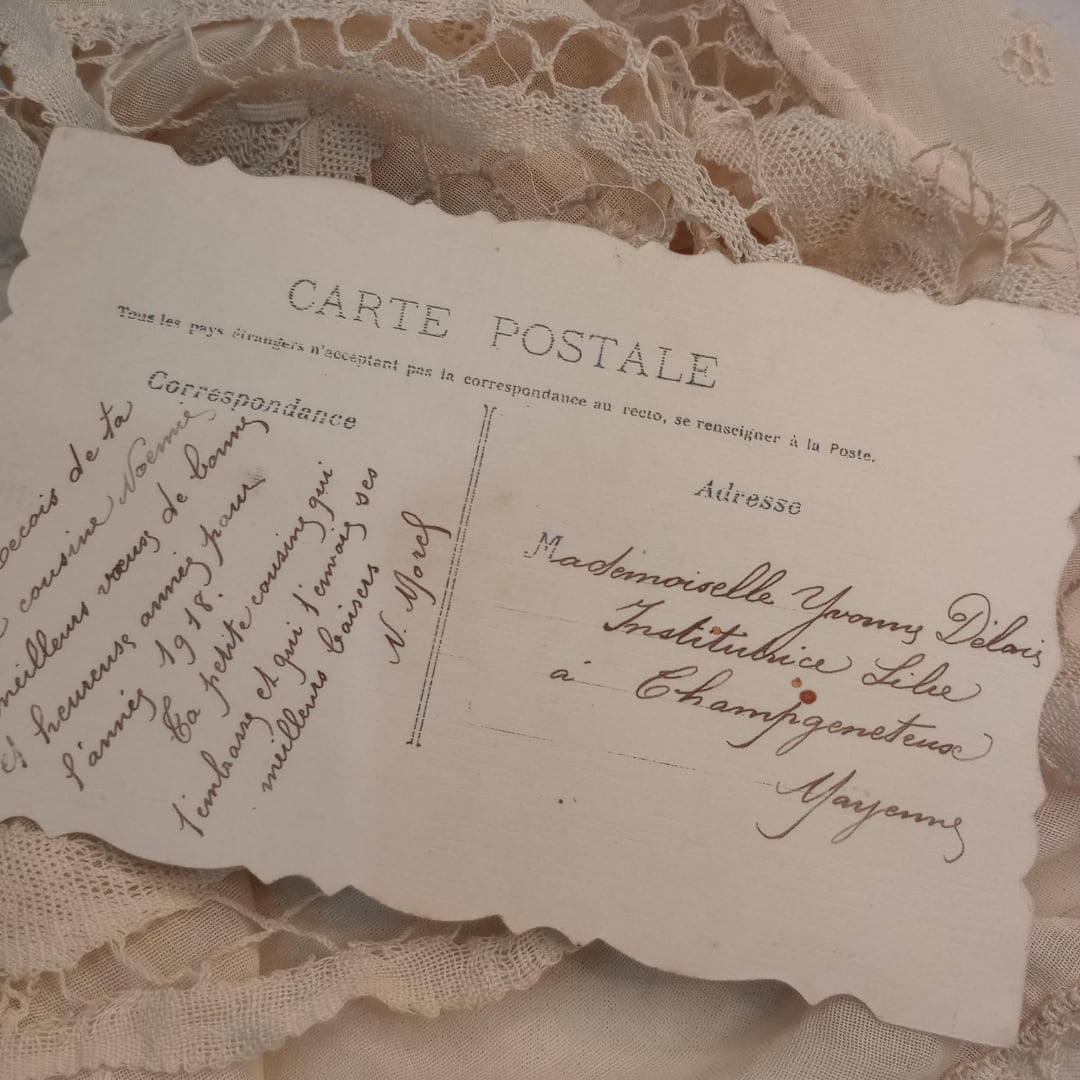 CARTE POSTALE
Tous les pays étrangers n'acceptant pas la correspondance au recto, se renseigner à la Poste.
Correspondance
Recois de ta
cousine Noémie
meilleurs vœux de bonne
et heureuse année pour
l'année 1918.
Ta petite cousine qui
t'embrasse et qui t'envoie ses
meilleurs baisers
N. Morel
Adresse
Mademoiselle Yvonne Délais
Institutrice Libre
à Champgeneteux
Mayenne